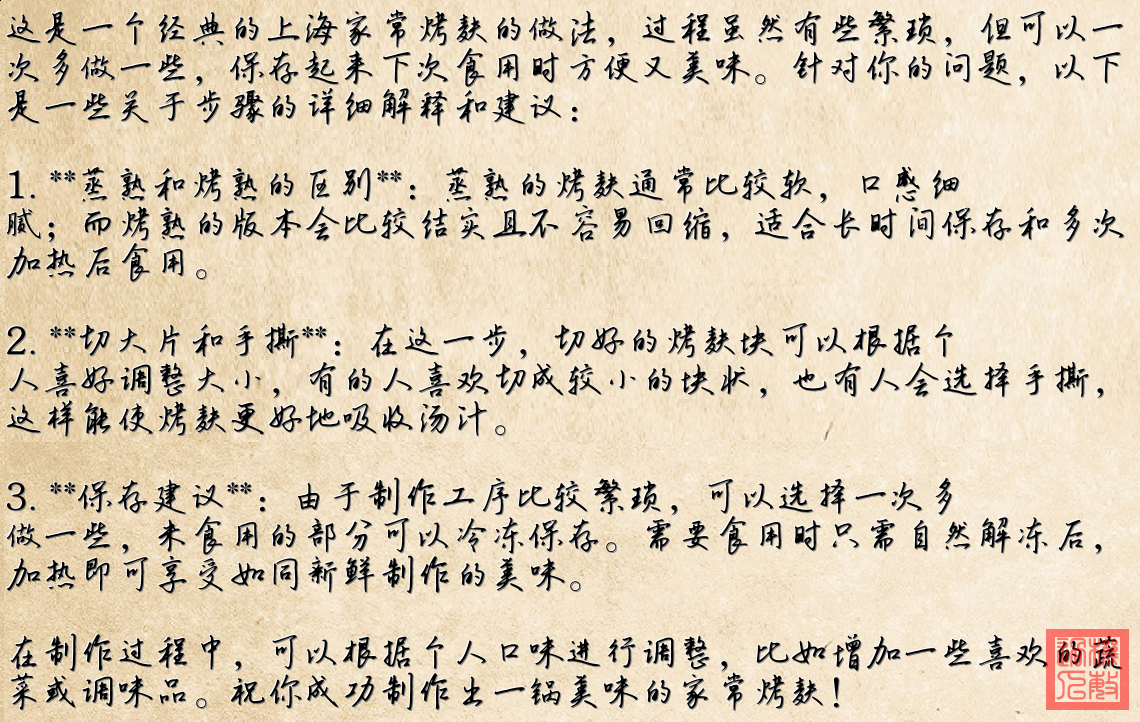 这是一个经典的上海家常烤麸的做法，过程虽然有些繁琐，但可以一
次多做一些，保存起来下次食用时方便又美味。针对你的问题，以下
是一些关于步骤的详细解释和建议：
1. **蒸熟和烤熟的区别**：蒸熟的烤麸通常比较软，口感细
腻；而烤熟的版本会比较结实且不容易回缩，适合长时间保存和多次
加热后食用。
2. **切大片和手撕**：在这一步，切好的烤麸块可以根据个
人喜好调整大小，有的人喜欢切成较小的块状，也有人会选择手撕，
这样能使烤麸更好地吸收汤汁。
3. **保存建议**：由于制作工序比较繁琐，可以选择一次多
做一些，未食用的部分可以冷冻保存。需要食用时只需自然解冻后，
加热即可享受如同新鲜制作的美味。
在制作过程中，可以根据个人口味进行调整，比如增加一些喜欢的蔬
菜或调味品。祝你成功制作出一锅美味的家常烤麸！